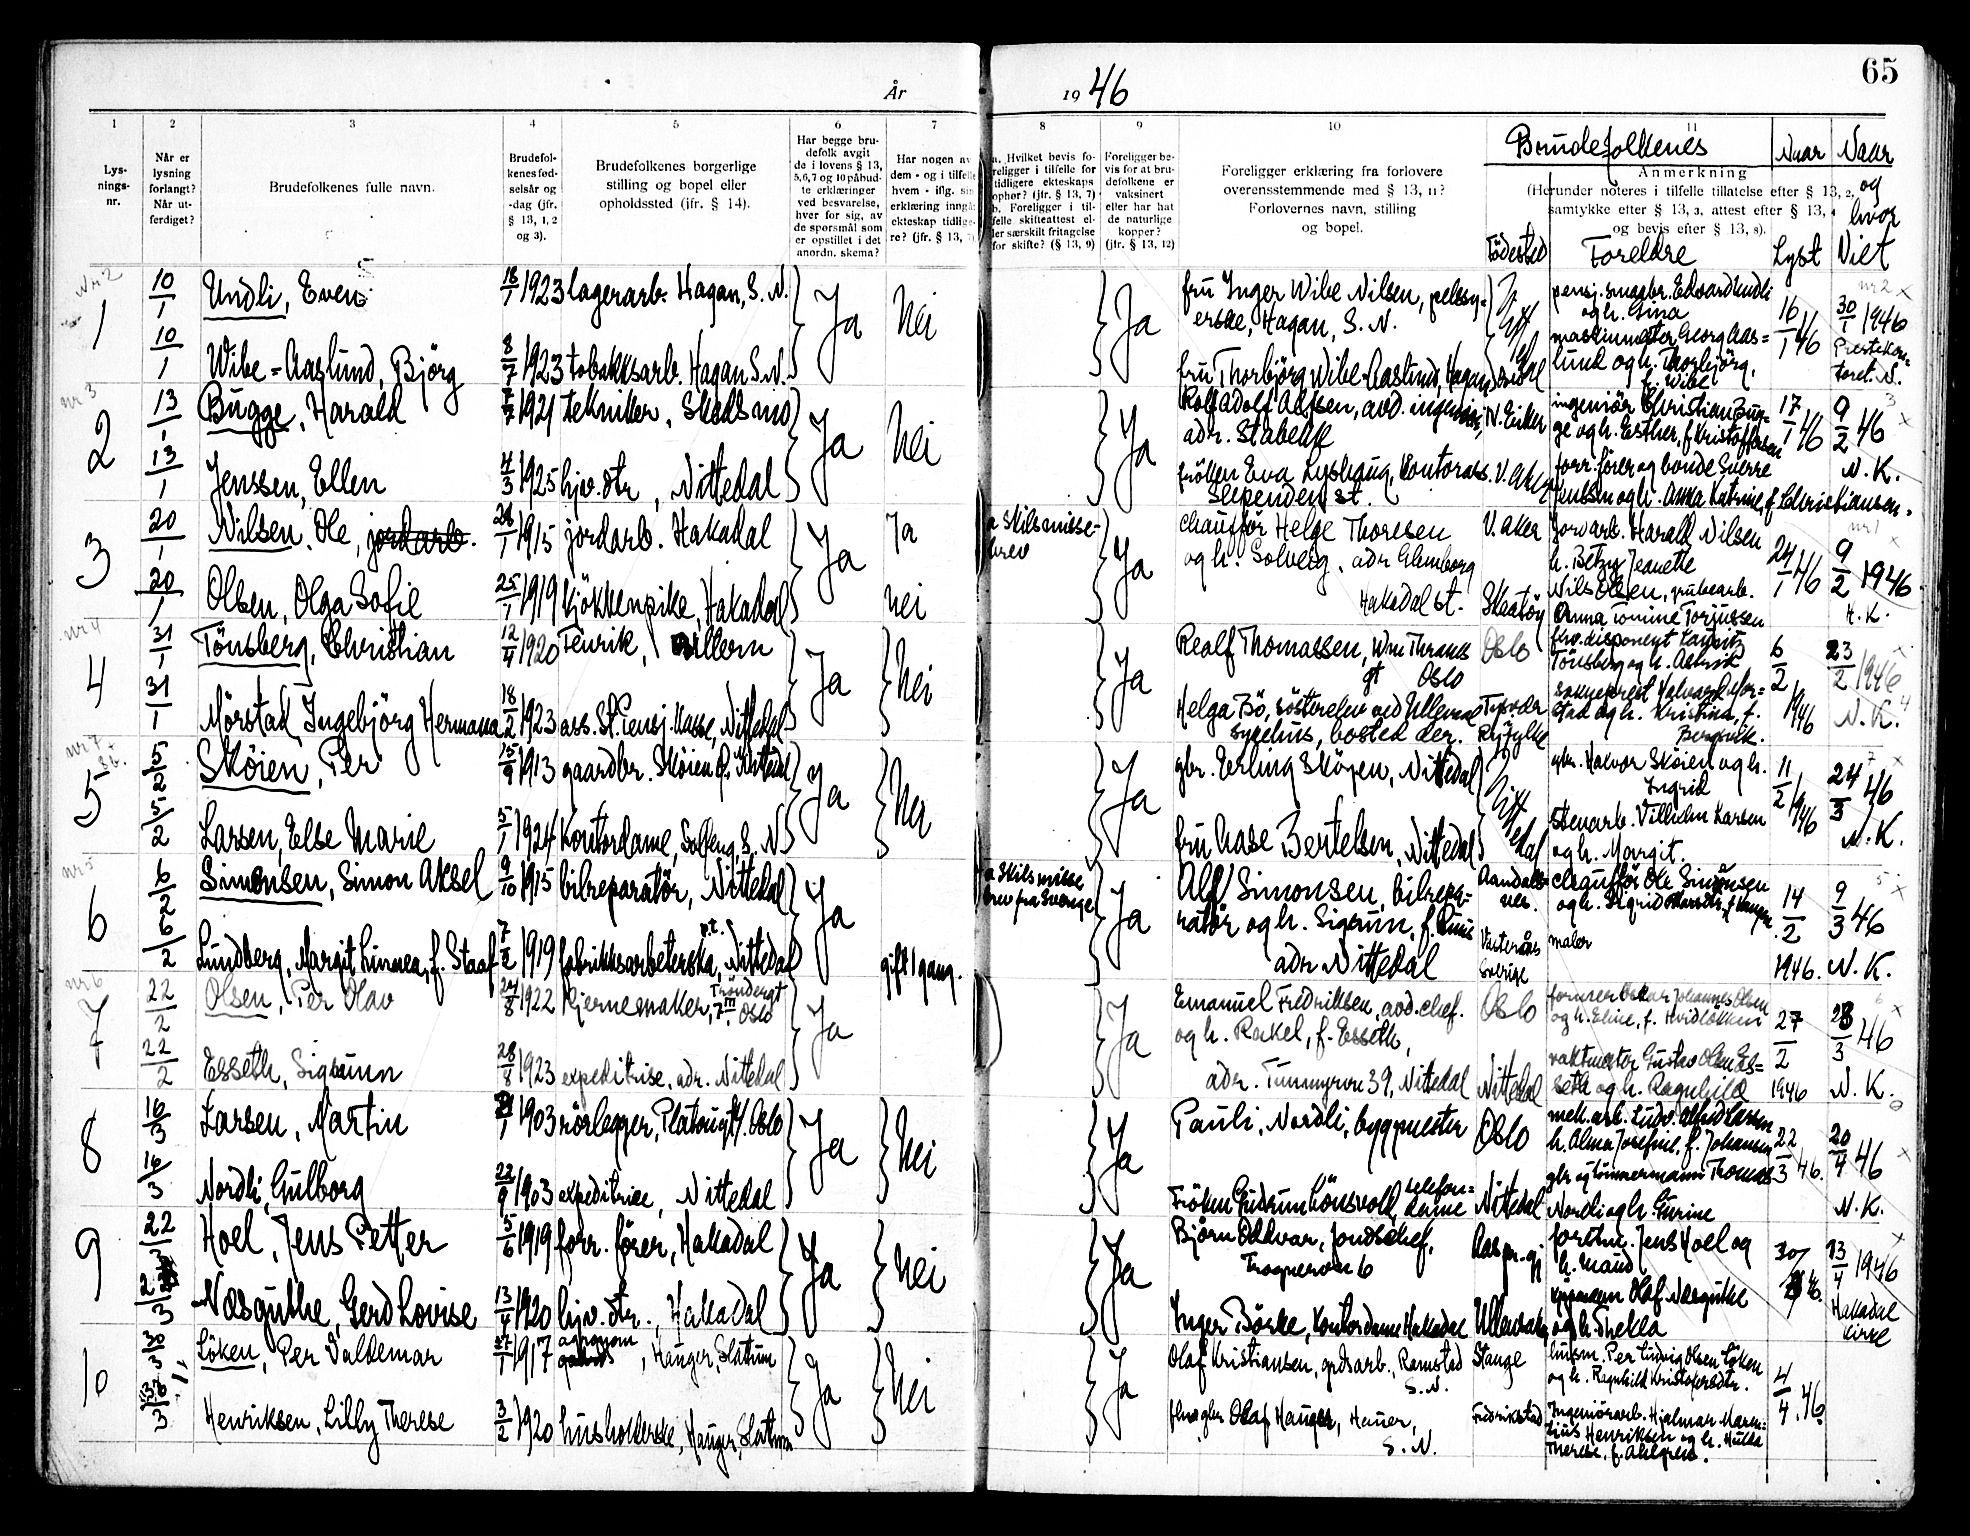 65
År
19 46
1
2
3
4
5
6
7
8
9
10
11
Lys-
nings-
nr.
Når er
lysning
forlangt?
Når ut-
ferdiget?
Brudefolkenes fulle navn.
Brudefol-
kenes fød-
selsår og
-dag (jfr.
§ 13, 1, 2
og 3).
Brudefolkenes borgerlige
stilling og bopel eller
opholdssted (jfr. § 14).
Har begge bru-
defolk avgit
de i lovens § 13,
5,6,7 og 10 påbud-
te erklæringer
ved besvarelse,
hver for sig, av
de spørsmål som
er opstillet i det
anordn. skema?
Har nogen av
dem - og i tilfelle
hvem - iflg. sin
erklæring inngå
ekteskap tidlige-
re? (jfr. § 13,
a. Hvilket bevis fo-
religger i tilfelle for
tidligere ekteskaps
ophør? (jfr. § 13, 7)
b. Foreligger i til-
felle skifteattest el-
ler særskilt fritagelse
for skifte? (§ 13, 9)
Foreligger be-
vis for at bru-
defolkene er
vaksinert
eller har hat
de naturlige
kopper?
(jfr. § 13, 12)
Foreligger erklæring fra forlovere
overensstemmende med § 13, 11?
Forlovernes navn, stilling
og bopel.
Brudefolkenes
Anmerkning
(Herunder noteres i tilfelle tillatelse efter § 13, 2,
samtykke efter § 13, 3, attest efter § 13, 4
og bevis efter § 13, 8).
Födested
Foreldre
Naar
Lyst
Naar
og
hvor
Viet
nr 2
1
10/1
Undli, Even
18/1 1923
lagerarb. Hagan, S. N.
Ja
Nei
Ja
fru Inger Wibe Nilsen, pelssy-
erske, Hagan, S. N.
Nittedal
pensj. smaabr. Edvard Undli
og h. Gina
16/1 46
30/1 1946
10/1
Wibe-Aaslund, Björg
8/7 1923
tobakksarb. Hagan S. N.
fru Thorbjörg Wibe-Aaslund, Hagan
maskinmester Georg Aas-
lund og h. Thorbjörg,
f. Wibe
Prestekon-
toret. N.
nr 3
2
13/1
Bugge, Harald
7/7 1921
tekniker, Skedsmo
Ja
Nei
Ja
Rolf Adolf Alfsen, avd. ingeniör,
adr. Stabekk
N. Eiker
ingeniör Christian Bug-
ge og h. Esther, f. Kristoffersen
17/1 46
9/2 46
13/1
Jenssen, Ellen
4/3 1925
hjv. dtr, Nittedal
fröken Eva Lyshaug, kontorass.
Slependen st.
V. Aker
forr. förer og bonde Sverre
Jenssen og h. Anna Katrine, f. Christiansen.
N. K.
3
20/1
Nilsen, Ole, jordarb.
1915
jordarb. Hakadal
Ja
Ja
a Skilsmisse-
brev
Ja
chaufför Helge Thoresen
og h. Solveig, adr Glemborg
Hakadal st.
V. Aker
Jordarb. Harald Nilsen
h. Betzy Jeanette
24/1 46
9/2 1946
20/1
Olsen, Olga Sofie
25/1 1919
kjökkenpike, Hakadal
nei
Skåtöy
Nils Olsen, grubearb.
Anna Tomine Torjussen
H. K.
nr 4
4
31/1
Tönsberg, Christian
12/4 1920
Fenrik,
Ja
Nei
Ja
Realf Thomassen, Wm Thranes
gt Oslo
Oslo
fhv. disponent Lauritz
Tönsberg og h. Astrid
6/2 1946
23/2 1946
31/1
Mørstad, Ingebjörg Hermana
18/2 1923
ass. St. Pensj. kasse, Nittedal
Helga Bö, sösterelev ved Ullevaal
sygehus, bosted der.
Ryfylke
sogneprest Halvard Mör-
stad og h. Kristina, f.
Bergsvik.
N. K.
nr 7
5
5/2
Skøien, Per
15/9 1913
gaardbr. Skøien, Nittedal
Ja
Nei
Ja
gbr. Erling Skøyen, Nittedal
Nittedal
gbr. Halvor Skøien og h.
Ingrid
11/2 1946
24/3 46
5/2
Larsen, Else Marie
5/1 1924
kontordame, Solfeng, S. N
fru Aase Bertelsen, Nittedal
stenarb. Vilhelm Larsen
og h. Margit.
N. K.
nr 5
6
6/2
Simonsen, Simon Aksel
9/10 1915
bilreparatør, Nittedal
Ja
a Skilsmisse
brev fra Sverige
Ja
Alf Simonsen, bilrepa-
ratør og h. Sigrun, f. Ruud
adr Nittedal
Aandals-
nes.
chauffør Ole Simonsen
14/2 1946.
9/3 46
6/2
Lundberg, Margit Linnea, f. Staaf
7/2 1919
fabrikksarbeterska, p.t. Nittedal
gift 1 gang.
Västerås
Sverige
maler
N. K.
nr 6
7
22/2
Olsen, Per Olav
24/8 1922
kjernemaker, Trondergt
7 III, Oslo
Ja
Ja
Emanuel Fredriksen, avd. chef.
og h. Rakel, f. Esseth,
adr. Tunnyvn 39, Nittedal
Oslo
former Oskar Johannes Olsen
og h. Eline, f. Hvidløkken
27/2 1946
23/3 46
22/2
Esseth, Sigrunn
28/8 1923
expeditrise, adr. Nittedal
Nittedal
vaktmester Gustav Olsen Es-
seth og h. Ragnhild
N. K.
8
16/3
Larsen, Martin
1903
rörlegger, Platougt, Oslo
Ja
Nei
Ja
Pauli, Nordli, byggmester
Oslo
mek. arb. Ludv. Alfred Larsen
h. Alma Josefine, f. Johansen
22/3 46.
20/4 46
16/3
Nordli, Gulborg
22/9 1903
expeditrise, Nittedal
Fröken Gudrun Lönsvold, telefon-
dame
Nittedal
gbr og tömmermann Thomas
Nordli og h. Gurine
N. K.
9
22/3
Hoel, Jens Petter
5/6 1919
forr. förer, Hakadal
Ja
Nei
Ja
Björn Oldevar, Jordschef,
Frognervn 6
forrtn. Jens Hoel og
h. Maud
30/3 46.
13/4 1946
22/3
Næsguthe, Gerd Lovise
13/4 1920
hjv. dtr., Hakadal
Inger Börke, kontordame Hakadal
Ullensaker
Olaf Næsguthe
og h. Thekla
Hakadal
kirke
10
30/3
Löken, Per Valdemar
27/1 1917
agronom
, Hauger, Slattum
Ja
Nei
Ja
Olaf Kristiansen, grdsarb., Ramstad
S. N.
Stange
husm. Per Ludvig Olsen Löken
og h. Ragnhild Kristofersdtr.
4/4 46
30/3
Henriksen, Lilly Therese
3/2 1920
husholderske, Hauger, Slattum
fhv. gbr Olaf Hauger, Hauer,
S. N.
Fredrikstad
Ingeniörarb. Hjalmar Maren-
tius Henriksen og h. Hulda
Therese, f. Ahlgren.